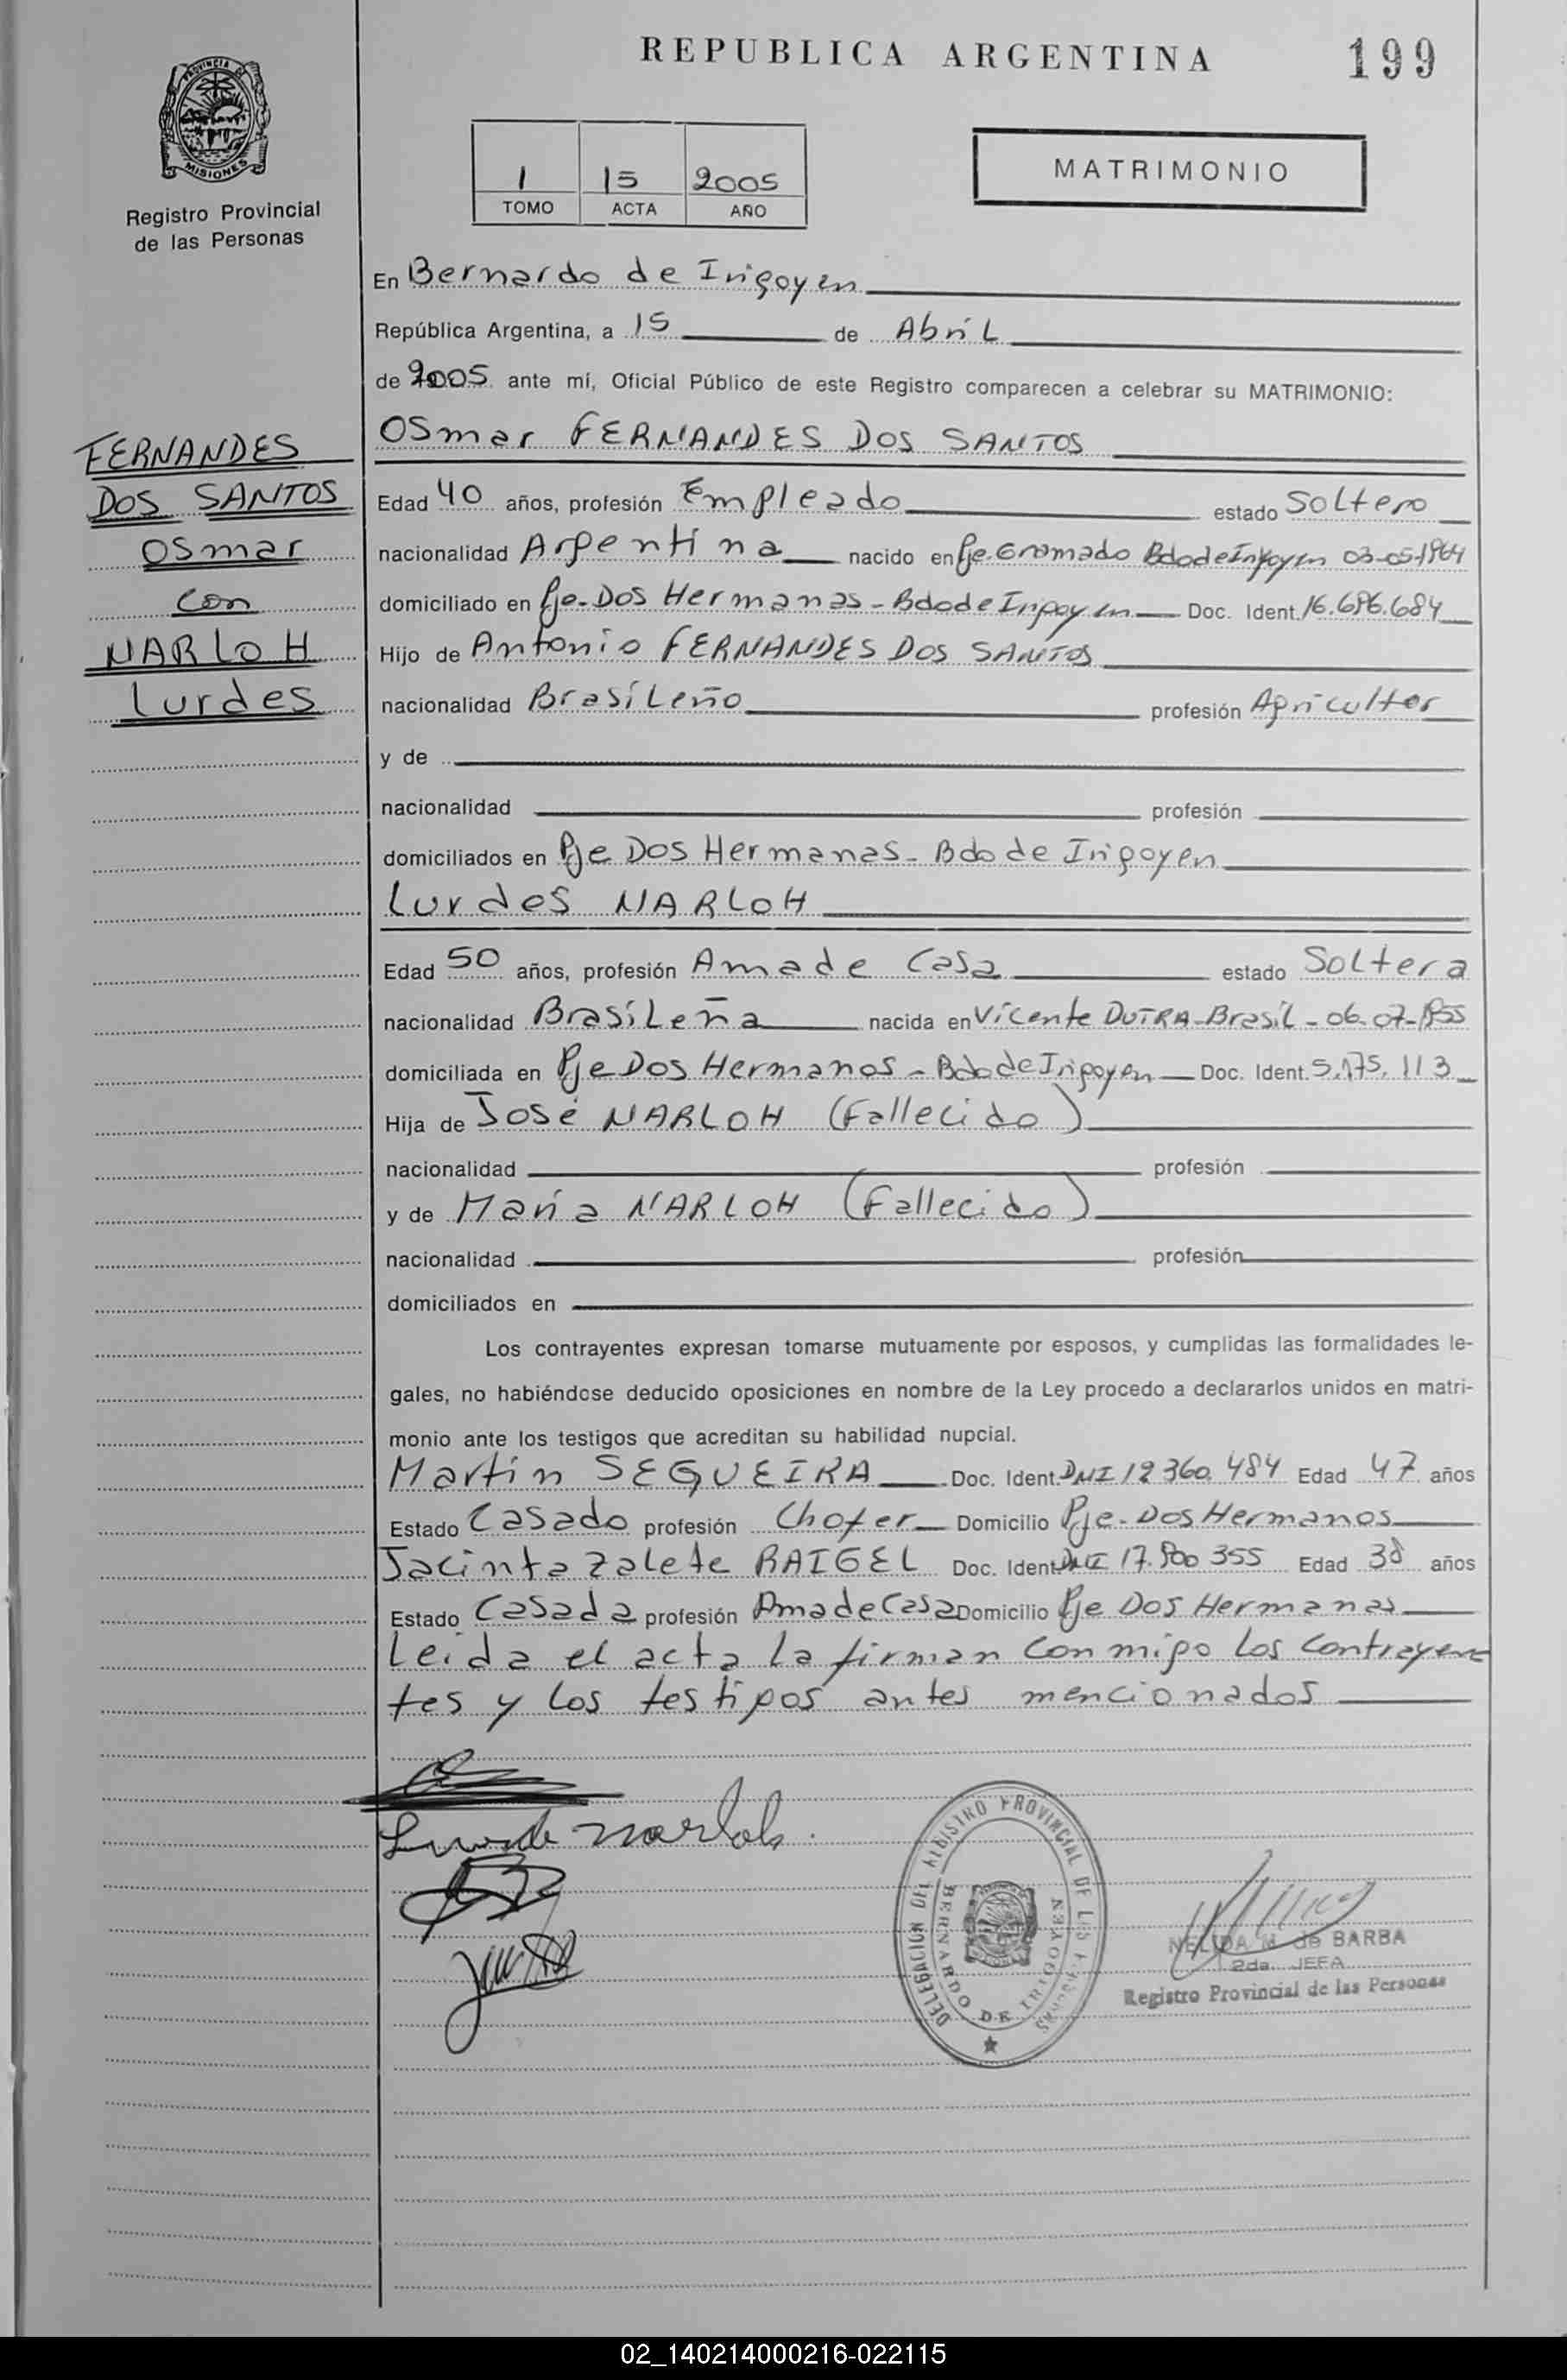 REPUBLICA ARGENTINA
199
PROVINCIA DE
MISIONES
Registro Provincial
de las Personas
1 15 2005
TOMO ACTA AÑO
MATRIMONIO
En Bernardo de Irigoyen
República Argentina, a 15 de Abril
de 2005 ante mí, Oficial Público de este Registro comparecen a celebrar su MATRIMONIO:
FERNANDES
DOS SANTOS
Osmar
con
NARLOH
Lurdes
Osmar FERNANDES DOS SANTOS
Edad 40 años, profesión Empleado estado Soltero
nacionalidad Argentina nacido en Pje. Gramado Bdo de Irigoyen 03-05-1964
domiciliado en Pje. Dos Hermanas - Bdo de Irigoyen Doc. Ident. 16.686.684
Hijo de Antonio FERNANDES DOS SANTOS
nacionalidad Brasileño profesión Agricultor
y de
nacionalidad profesión
domiciliados en Pje Dos Hermanas - Bdo de Irigoyen
Lurdes NARLOH
Edad 50 años, profesión Ama de Casa estado Soltera
nacionalidad Brasileña nacida en Vicente DUTRA - Brasil - 06-07-1955
domiciliada en Pje Dos Hermanas - Bdo de Irigoyen Doc. Ident. 5.175.113
Hija de José NARLOH (Fallecido)
nacionalidad profesión
y de María NARLOH (Fallecido)
nacionalidad profesión
domiciliados en
Los contrayentes expresan tomarse mutuamente por esposos, y cumplidas las formalidades le-
gales, no habiéndose deducido oposiciones en nombre de la Ley procedo a declararlos unidos en matri-
monio ante los testigos que acreditan su habilidad nupcial.
Martin SEQUEIRA Doc. Ident. DNI 12.360.484 Edad 47 años
Estado Casado profesión Chofer Domicilio Pje. Dos Hermanas
Jacinta Zalete RAIGEL Doc. Ident. DNI 17.800.355 Edad 38 años
Estado Casada profesión Ama de Casa Domicilio Pje Dos Hermanas
Leida el acta la firman con migo los contrayen
tes y los testigos antes mencionados
Lurde narloh
DELEGACION DEL REGISTRO PROVINCIAL DE LAS PERSONAS
BERNARDO DE IRIGOYEN
NELIDA M. de BARBA
2da. JEFA
Registro Provincial de las Personas
02_140214000216-022115